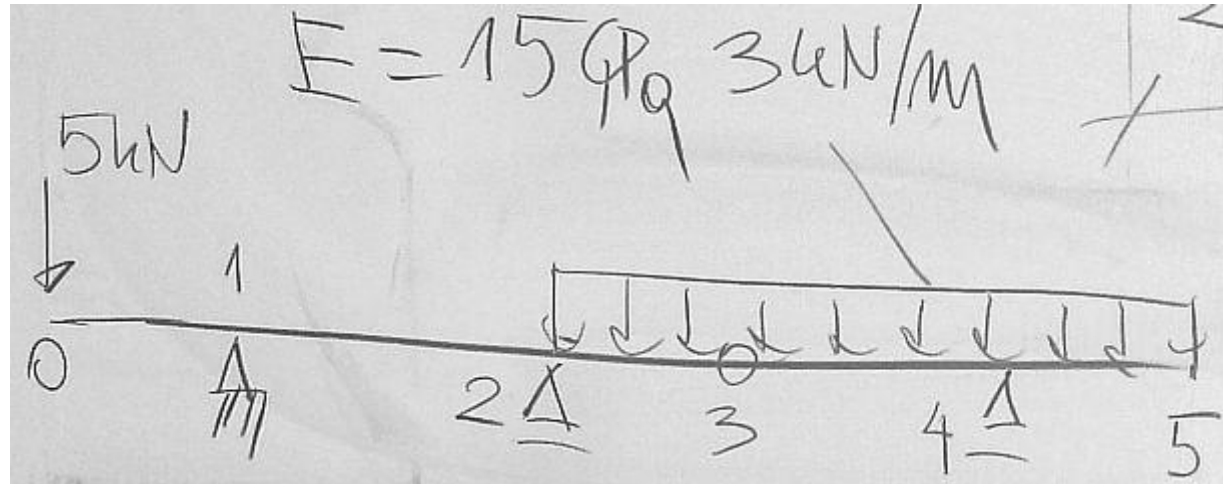 E = 15 GPa 3 kN/m
5 kN
1
0 2 3 4 5